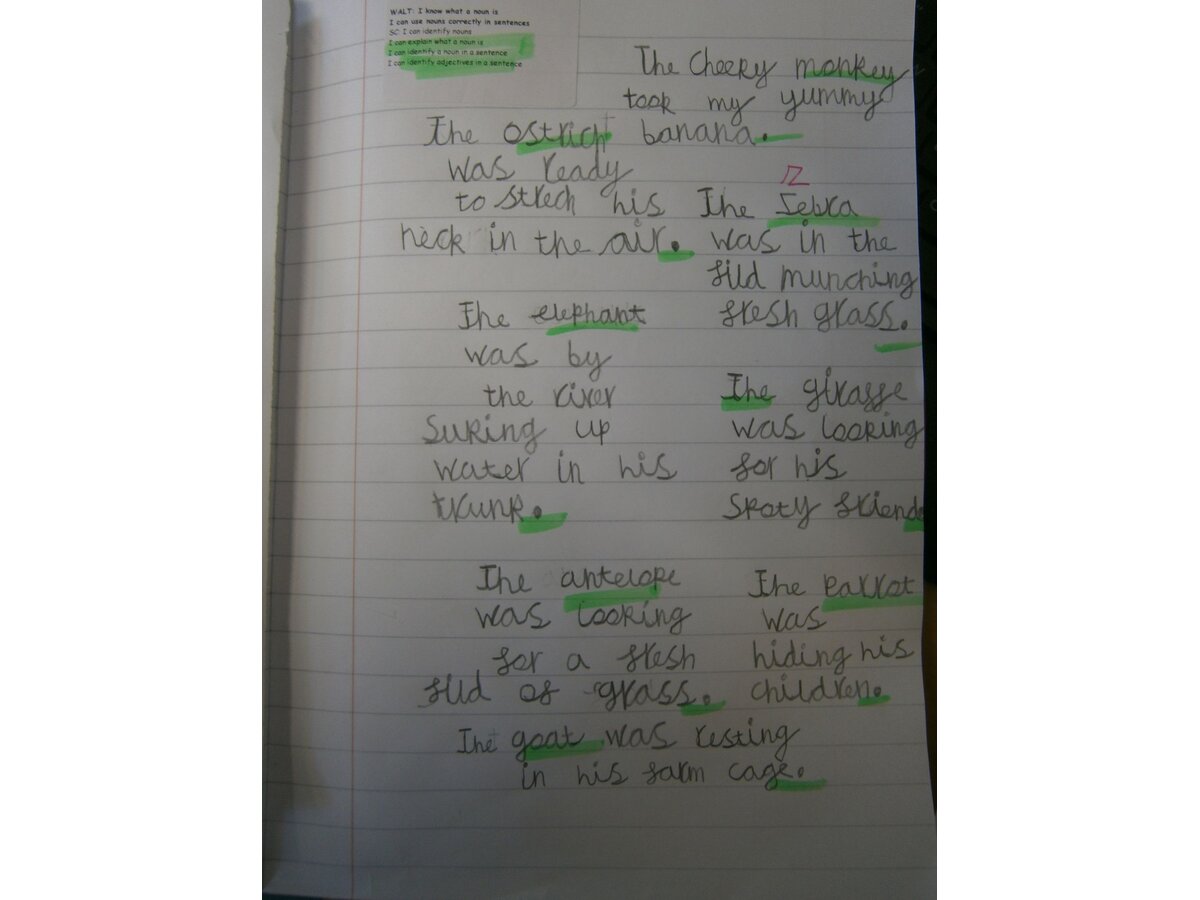 WALT: I know what a noun is
I can use nouns correctly in sentences
SC: I can identify nouns
I can explain what a noun is
I can identify a noun in a sentence
I can identify adjectives in a sentence
The Cheeky monkey
took my yummy
banana.
The ostrich
was ready
to strech his
neck in the air.
Z
The Sebra
was in the
fild munching
fresh grass.
The elephant
was by
the river
suking up
water in his
trunk.
The giraffe
was looking
for his
Spoty friends
The antelope
was looking
for a fresh
fild of grass.
The Parrot
was
hiding his
children.
The goat was resting
in his farm cage.